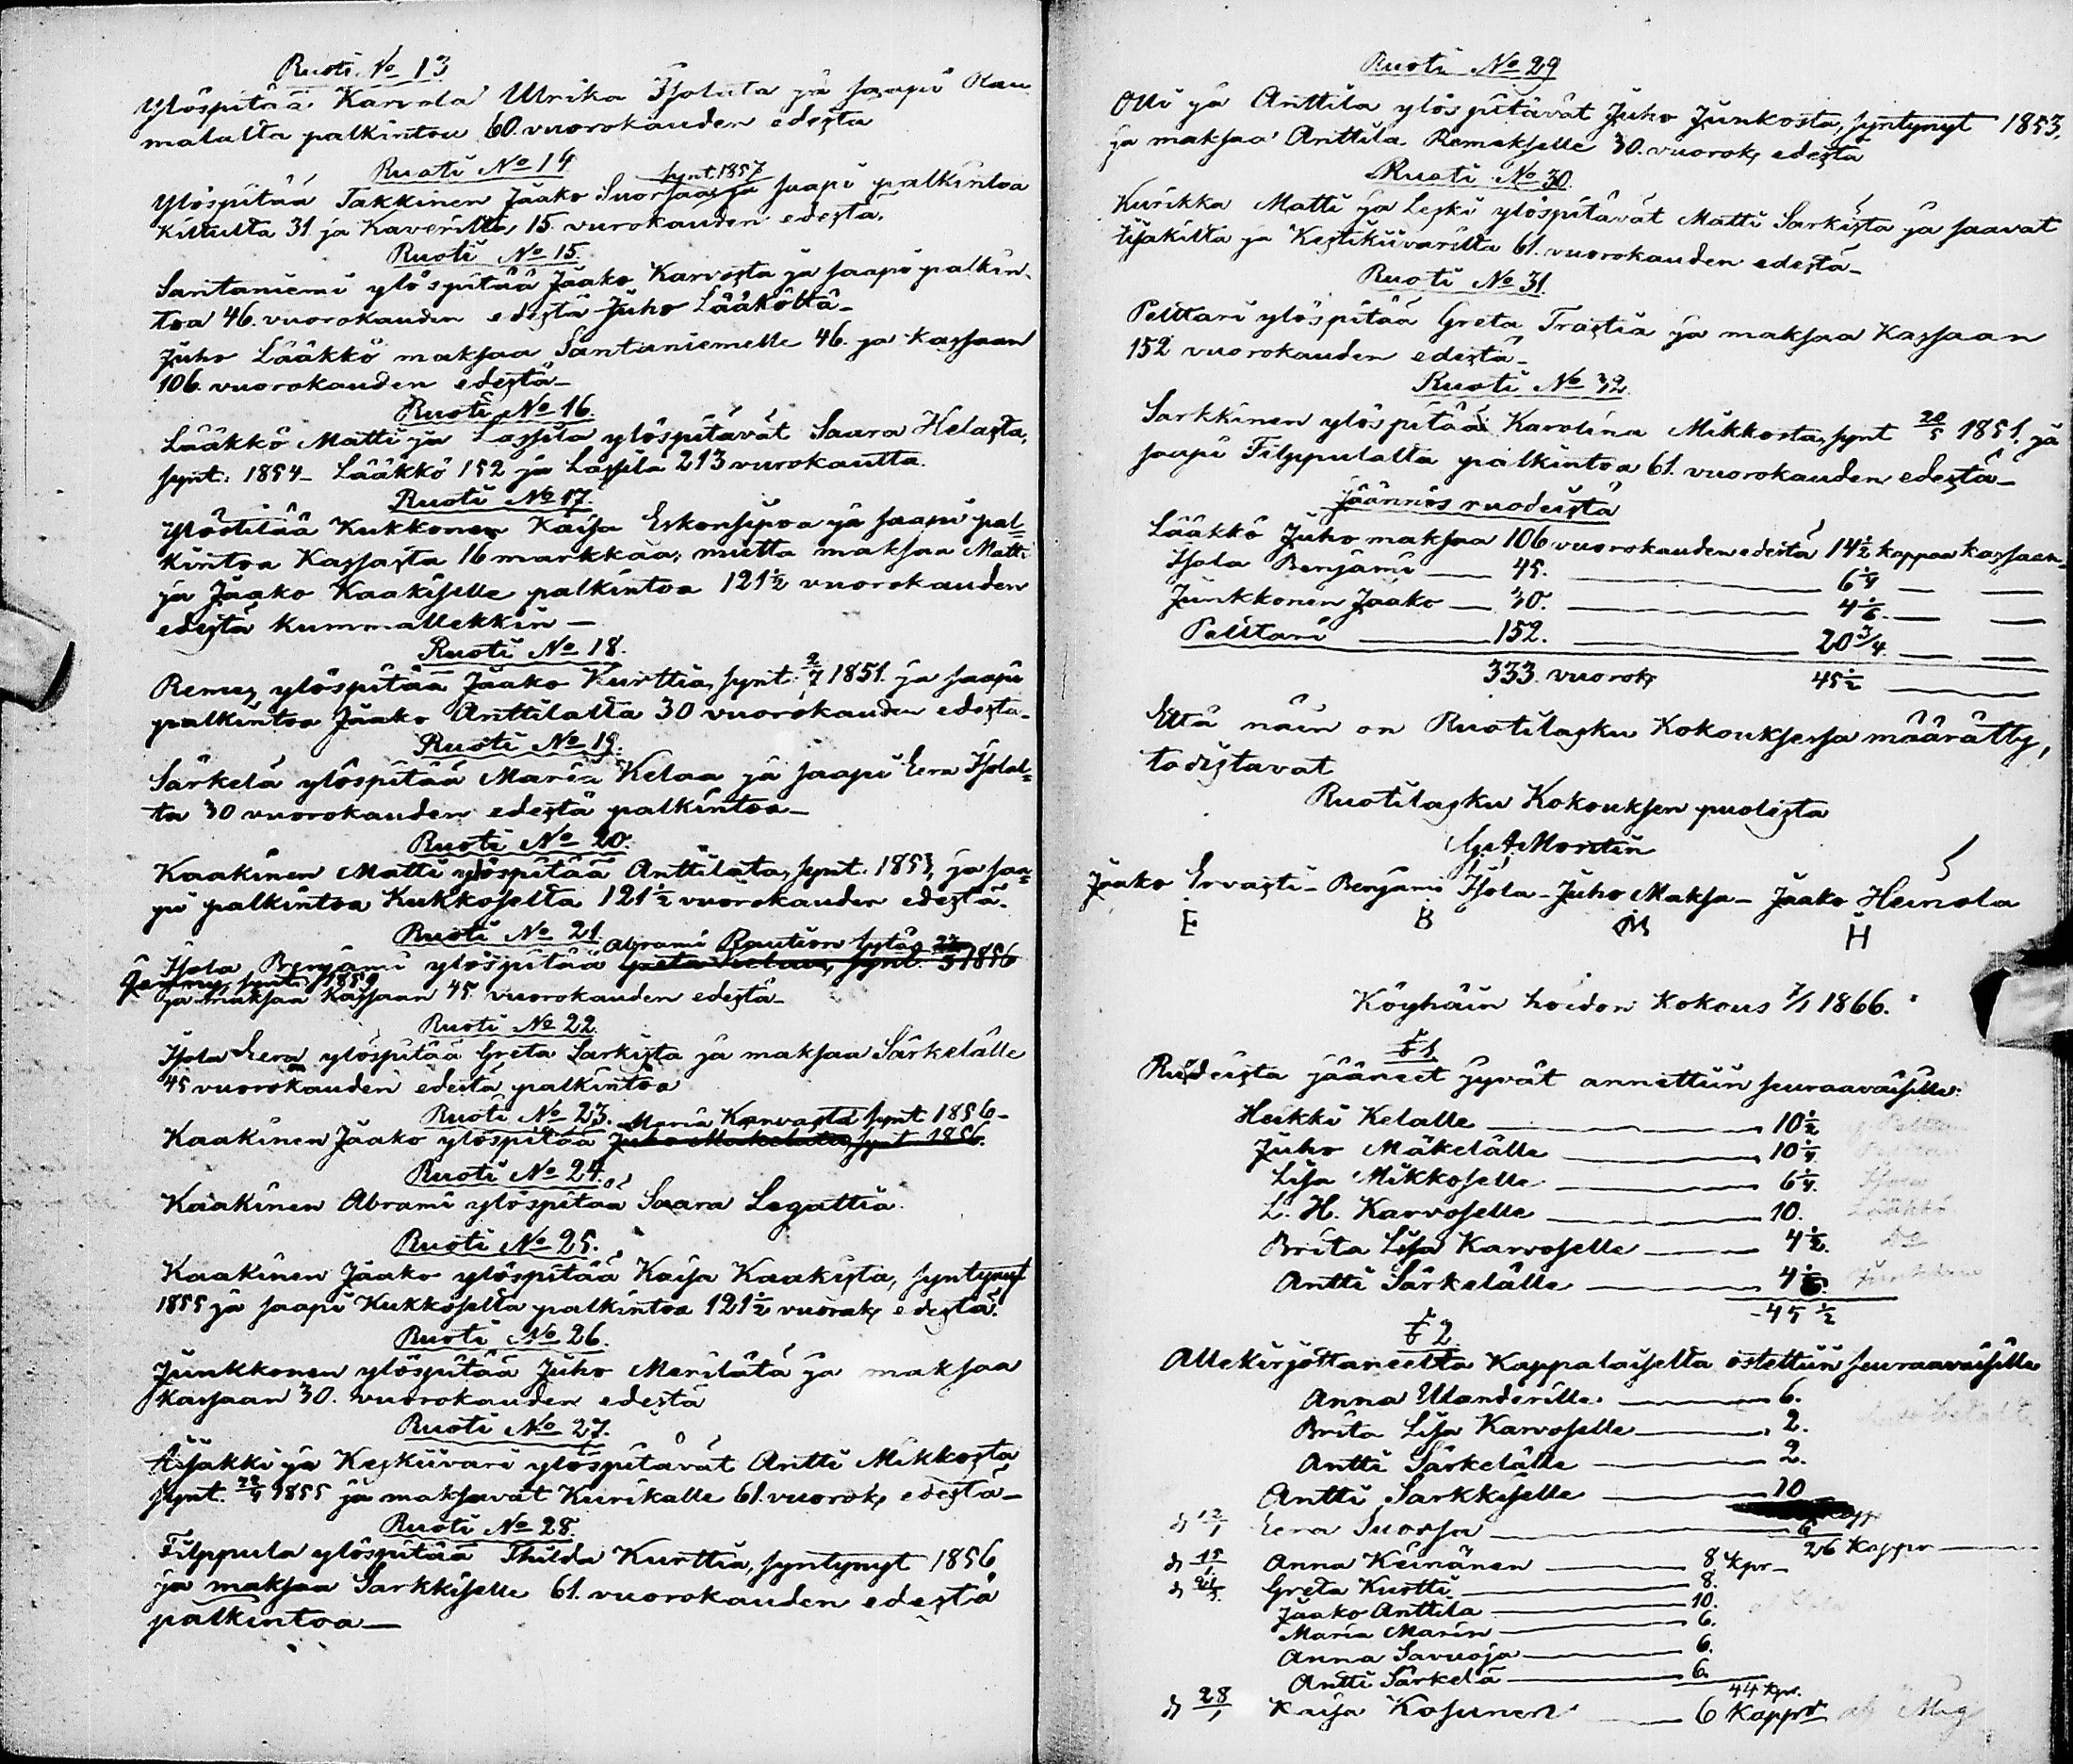 Ruoti No 13
Ylöspitää Karvola Ulrika Isolata ja saapi Rau
malalta palkintoa 60. vuorokauden edestä
Ruoti No 14
synt. 1857
Ylöspitää Takkinen Jaako Suorsaa ja saapi palkintoa
Kittulta 31 ja Kaverilta, 15 vurokauden edestä.
Ruoti No 15.
Santaniemi ylöspitää Jaako Karvosta ja saapi palkin-
toa 46. vuorokauden edestä Juho Lääköltä-
Juho Lääkkö maksaa Santaniemelle 46. ja kassaan
106. vuorokauden edestä-
Ruoti No 16.
Lääkkö Matti ja Lassila ylöspitävät Saara Helasta,
synt: 1854- Lääkkö 152 ja Lassila 213 vurokautta.
Ruoti No 17.
Ylöspitää Kukkonen Kaisa Eskonsipoa ja saapi pal=
kintoa Kassasta 16 markkaa, mutta maksaa Matti
ja Jaako Kaakiselle palkintoa 121½ vuorokauden
edestä kummallekkin-
Ruoti No 18.
Remes ylöspitää Jaako Kurttia, synt. 2/7 1851. ja saapi
palkintoa Jaako Anttilalta 30 vuorokauden edestä-
Ruoti No 19.
Särkelä ylöspitää Maria Kelaa ja saapi Eera Isolal=
ta 30 vuorokauden edestä palkintoa-
Ruoti No 20.
Kaakinen Matti ylöspitää Anttilata, synt. 1853, ja saa=
pi palkintoa Kukkoselta 121½ vuorokauden edestä.
Ruoti No 21.
Abrami Raution
Isola Benjami ylöspitää Greta Kelaa, synt. 1856
synt. 1859
ja maksaa Kassaan 45 vuorokauden edestä-
Ruoti No 22.
Isola Eera ylöspitää Greta Sarkista ja maksaa Särkelälle
45 vuorokauden edestä palkintoa
Ruoti No 23. Maria Karvasta synt 1856-
Kaakinen Jaako ylöspitää Juho synt 1856.
Ruoti No 24.
Kaakinen Abrami ylöspitää Saara Legattia.
Ruoti No 25.
Kaakinen Jaako ylöspitää Kaisa Kaakista, syntynyt
1855 ja saapi Kukkoselta palkintoa 121½ vuorok, edestä.
Ruoti No 26.
Junkkonen ylöspitää Juho Merilätä ja maksaa
Kassaan 30. vuorokauden edestä
Ruoti No 27.
Iisakki ja Keskiivari ylöspitävät Antti Mikkosta
synt. 1855 ja maksavat Kurikalle 61. vuorok, edestä-
Ruoti No 28.
Filppula ylöspitää Thilda Kurttia, syntynyt 1856
ja maksaa Sarkkiselle 61. vuorokauden edestä
palkintoa-
Ruoti No 29
Olli ja Anttila ylöspitävät Juho Junkosta, syntynyt 1853,
ja maksaa Anttila Remekselle 30. vuorok, edestä
Ruoti No 30.
Kurikka Matti ja Leski ylöspitävät Matti Sarkista ja saavat
Iisakilta ja Kestikiivarilta 61. vuorokauden edestä-
Ruoti No 31.
Pelttari ylöspitää Greta Trastia ja maksaa Kassaan
152 vuorokauden edestä-
Ruoti No 32
Sarkkinen ylöspitää Karolina Mikkosta, synt 20/5 1851, ja
saapi Filppulalta palkintoa 61. vuorokauden edestä-
Jäännös ruodeista
Lääkkö Juho maksaa 106 vuorokauden edestä 14½ kappaa kassaan-
Isola Benjami — 45. — 6¼ — —
Junkkonen Jaako — 30. — 4 — —
Pelttari — 152. — 20¾ — —
333. vuorok, 45½ —
Että näin on Ruotilasku Kokouksessa määrätty,
todistavat
Ruotilasku Kokouksen puolista
Montin
Jaako Ervasti- Benjami Isola- Juho Maksa- Jaako Heinola
E B M H
Köyhäin hoidon Kokous 7/1 1866.
§ 1
Ruodeista jääneet jyvät annettiin seuraavaisille:
Heikki Kelalle — 10½
Juho Mäkelälle — 10¼
Lisa Mikkoselle — 6¼
L. H. Karvoselle — 10. Lääkkö
Brita Lisa Karvoselle — 4½. Do
Antti Särkelälle — 4 Junkkonen
-45½
§ 2
Allekirjottaneelta Kappalaiselta ostettiin seuraavaisille
Anna Ulanderille — 6.
Brita Lisa Karvoselle — 2.
Antti Särkelälle — 2.
Antti Sarkkiselle — 10
d 12/1 Eera Suorsa — 6
26 Kappa —
d 15/1 Anna Keinänen — 8 kpr-
d 21/1 Greta Kurtti — 8.
Jaako Anttila — 10.
Maria Marin — 6.
Anna Savuoja — 6.
Antti Särkelä — 6.
44 kpr.
d 28/1 Kaisa Kosunen — 6 Kappa